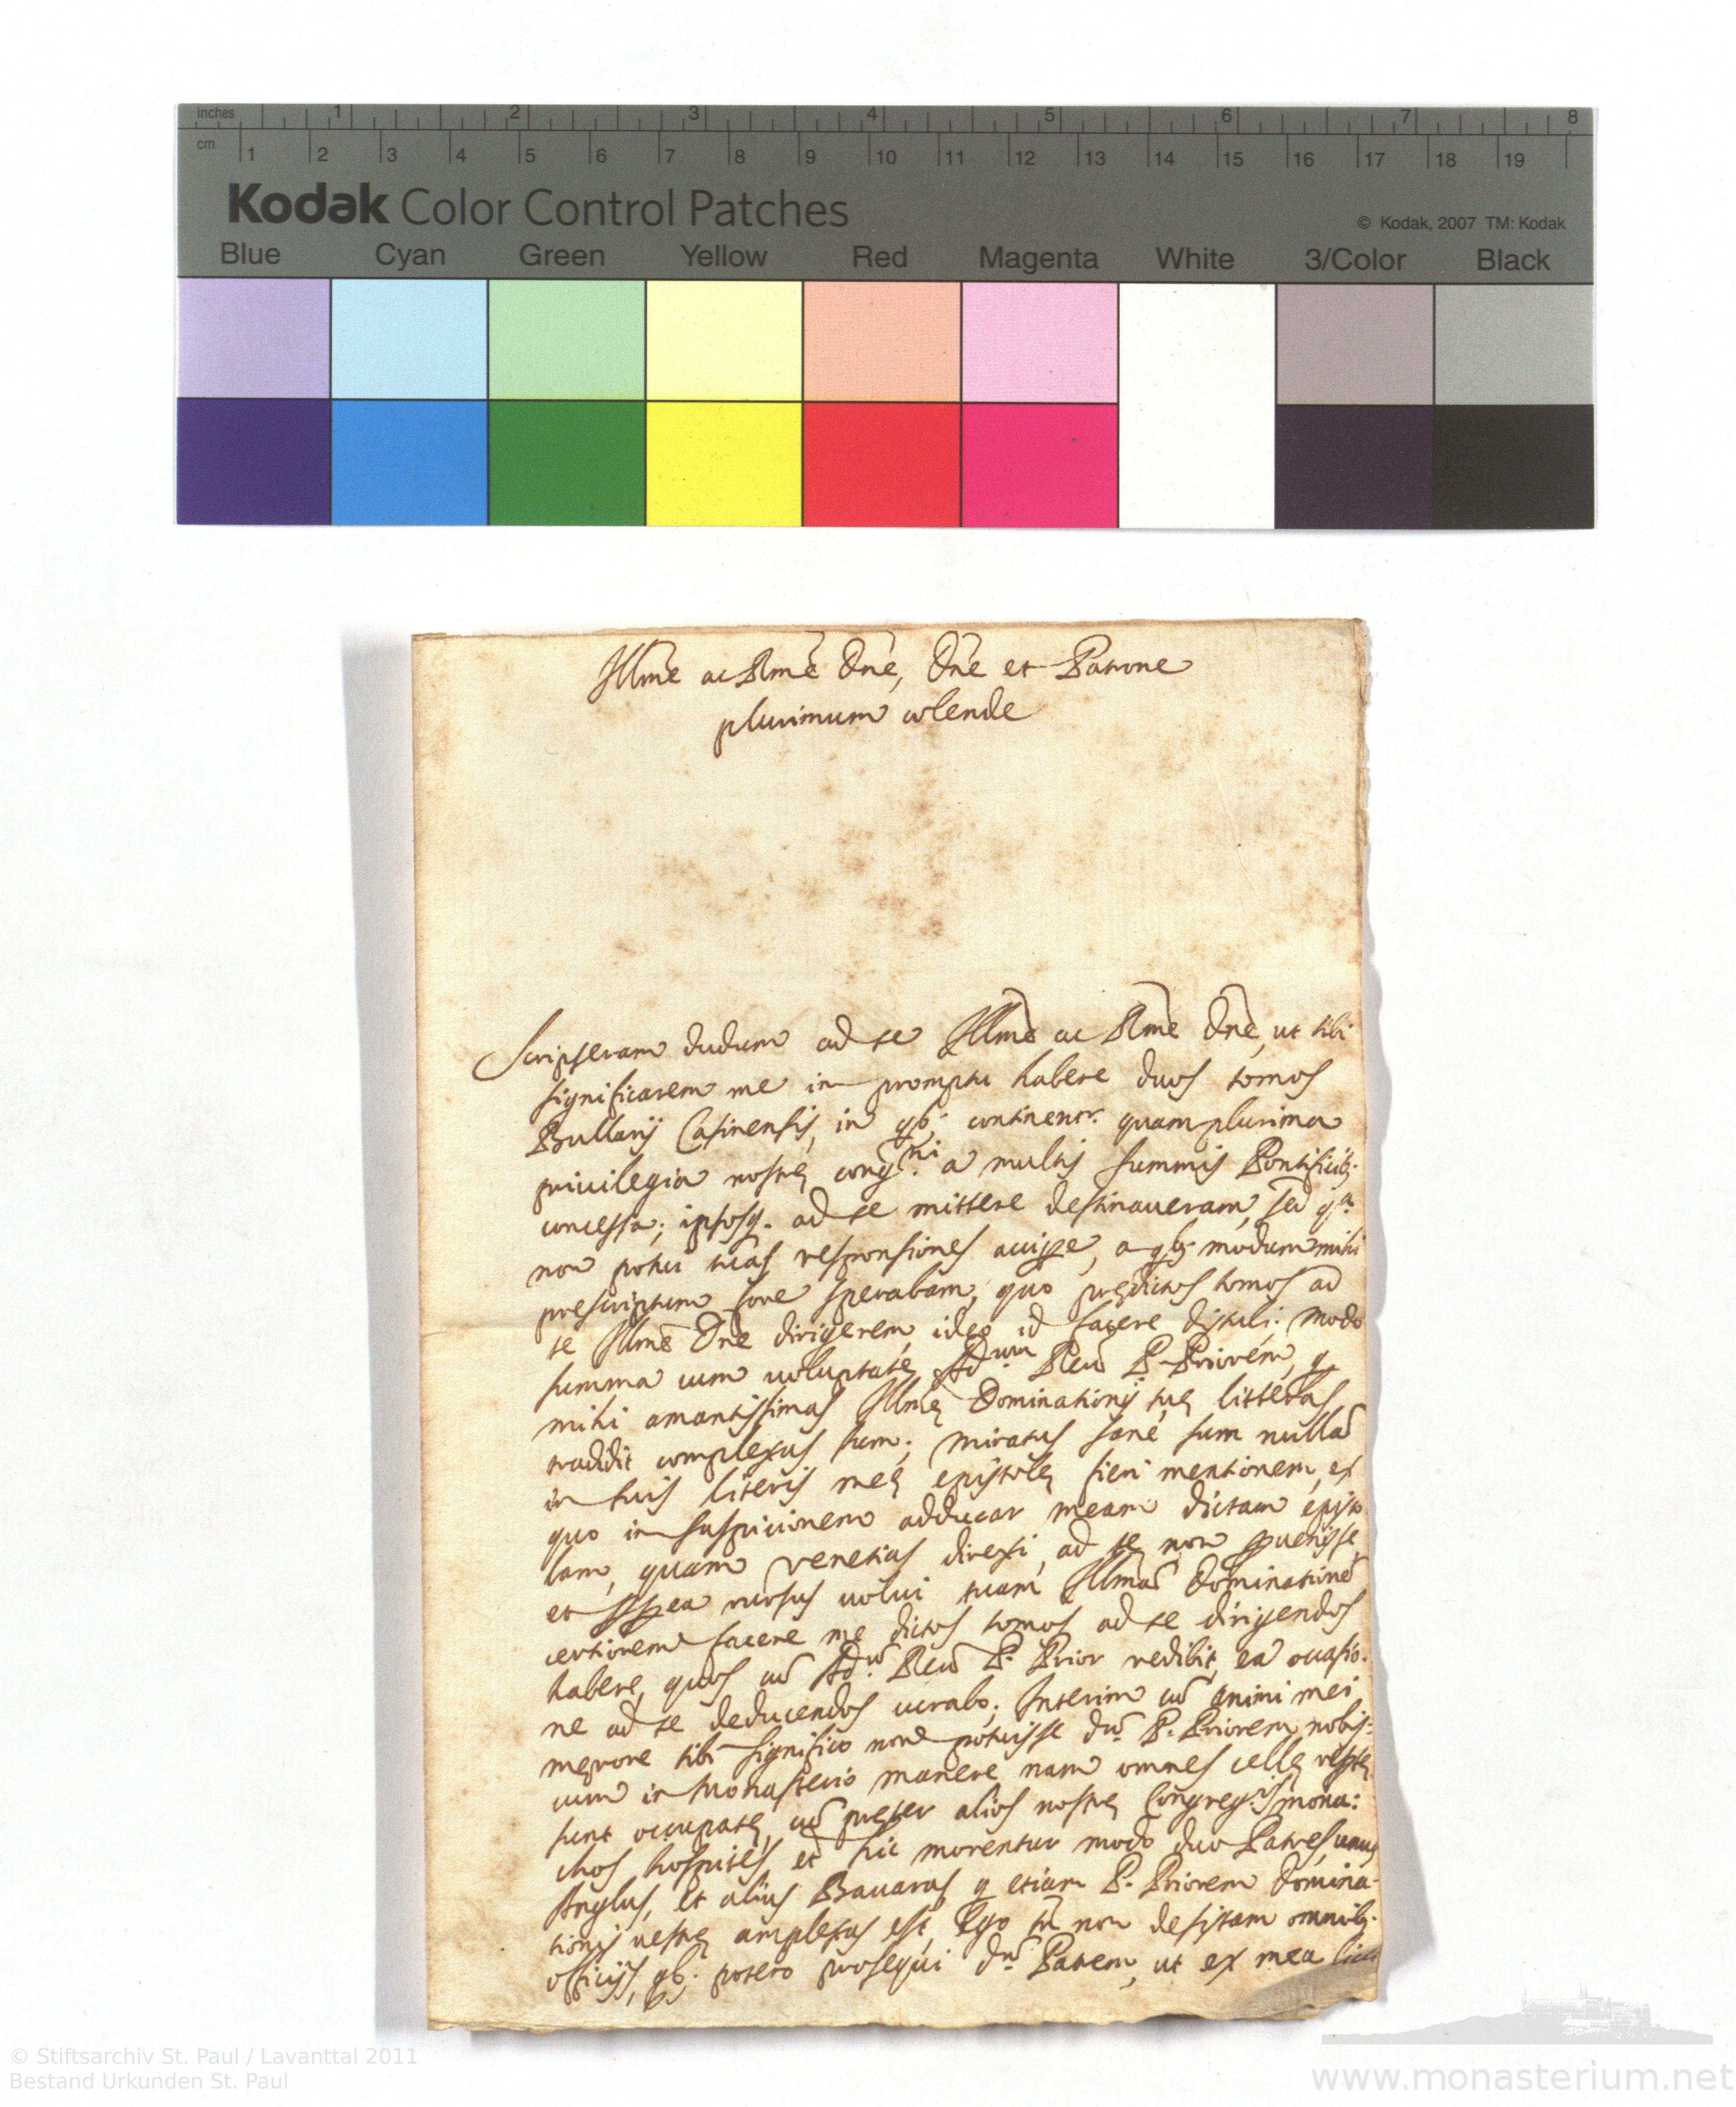 inches 1 2 3 4 5 6 7 8
cm 1 2 3 4 5 6 7 8 9 10 11 12 13 14 15 16 17 18 19
Kodak Color Control Patches
© Kodak, 2007 TM: Kodak
Blue Cyan Green Yellow Red Magenta White 3/Color Black
Illme ac Rme Dne, Dne et Patrone
plurimum colende
Scripseram dudum ad te Illme ac Rme Dne, ut tibi
significarem me in promptu habere duos tomos
Bullarij Casinensis, in qb; continentr. quam plurima
privilegia nostrę congni. a multis summis Pontificib;
concessa; ipsosq. ad te mittere destinaueram, sed qa.
non potui tuas responsiones accipe, a qb; modum mihi
prescriptum fore sperabam, quo prędictos tomos ad
te Illme Dne dirigerem, ideo id facere distuli; modo
summa cum uoluptate Adum Reu P. Priorem, q
mihi amantissimas Illmę Dominationis tuę litteras
tradidit complexus sum; miratus sane sum nulla
in tuis literis meę epistolę fieri mentionem, ex
quo in suspicionem adducor meam dictam episto
lam, quam Venetias direxi, ad te non puenisse,
et ppea rursus uolui tuam Illma Dominatione
certiorem facere me dictos tomos ad te dirigendos
habere, quos cu Adu. Reu P. Prior redibit, ea occasio-
ne ad te deducendos curabo; Interim cu animi mei
męrore tibi significo non potuisse du. P. Priorem nobis-
cum in Monasterio manere nam omnes cellę
sunt occupatę, cu pręter alios nostrę Congregis. mona:
chos hospites, et hic morentur modo duo Patres, unus
Anglus, et alius Bauarus q etiam P. Priorem Domina-
tionis uestrę amplexus est, Ego tn non desistam omnib;
officijs, qb; potero prosequi du. Patrem, ut ex mea
© Stiftsarchiv St. Paul / Lavanttal 2011
Bestand Urkunden St. Paul
www.monasterium.net